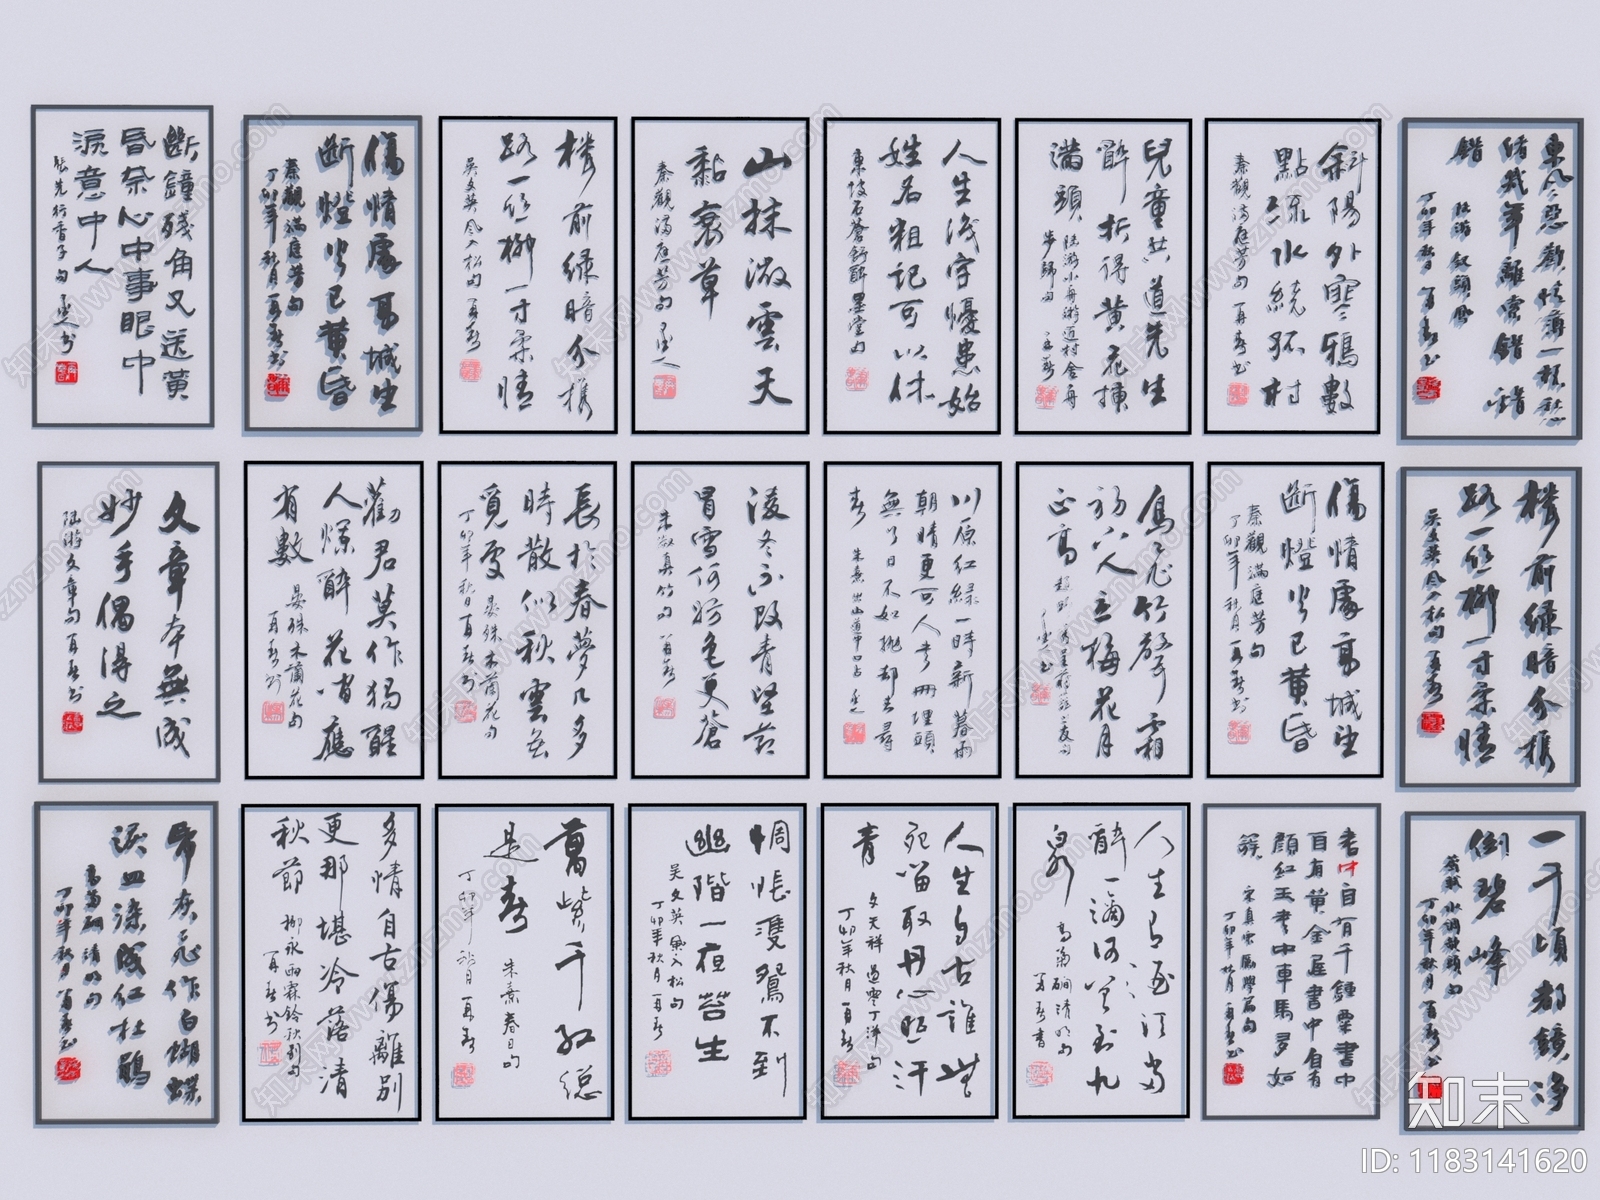 斷鐘殘角又送黃
昏奈心中事眼中
淚意中人
張先行香子句
傷情處高城望
斷燈火已黃昏
秦觀滿庭芳句
丁卯年秋月
樓前綠暗分攜
路一絲柳一寸柔情
吳文英風入松句
山抹微雲天
黏衰草
秦觀滿庭芳句
人生識字憂患始
姓名粗記可以休
東坡石蒼舒醉墨堂句
兒童共道先生
醉折得黃花插
滿頭
陸游小舟游近村舍舟
步歸句
斜陽外寒鴉數
點流水繞孤村
秦觀滿庭芳句
東風惡歡情薄一懷愁
緒幾年離索錯錯
錯
陸游釵頭鳳
丁卯年秋月
文章本無成
妙手偶得之
陸游文章句
勸君莫作獨醒
人爛醉花間應
有數
晏殊木蘭花句
長於春夢幾多
時散似秋雲無
覓處
晏殊木蘭花句
丁卯年秋月
凌冬不改青堅節
冒雪何妨色更蒼
朱淑真竹句
川原紅綠一時新暮雨
朝晴更可人書冊埋頭
無了日不如拋卻去尋
春
朱熹出山道中口占
正高
傷情處高城望
斷燈火已黃昏
秦觀滿庭芳句
丁卯年秋月
樓前綠暗分攜
路一絲柳一寸柔情
吳文英風入松句
紙灰飛作白蝴蝶
淚血染成紅杜鵑
高菊磵清明句
丁卯年秋月
多情自古傷離別
更那堪冷落清
秋節
柳永雨霖鈴秋別句
萬紫千紅總
是春
朱熹春日句
丁卯年
惆悵雙鴛不到
幽階一夜苔生
吳文英風入松句
丁卯年秋月
人生自古誰無死
留取丹心照汗
青
文天祥過零丁洋句
丁卯年秋月
人生有酒須當
醉一滴何曾到九
泉
高菊磵清明句
書中自有千鍾粟書中
自有黃金屋書中自有
顏紅玉書中車馬多如
簇
宋真宗勵學篇句
丁卯年秋月
一千頃都鏡淨
倒碧峰
蘇軾水調歌頭句
丁卯年秋月
知末
ID: 1183141620